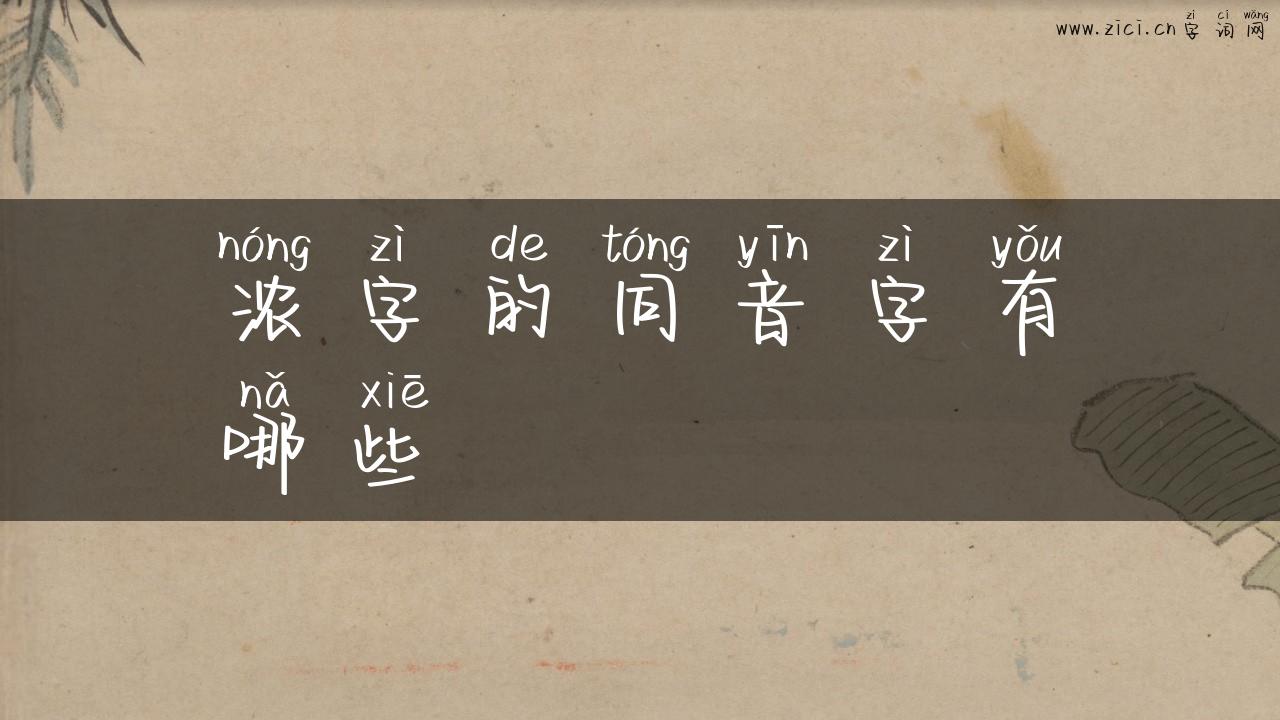 zì cí wǎng
www.zici.cn 字词网
nóng zì de tóng yīn zì yǒu
浓字的同音字有
nǎ xiē
哪些